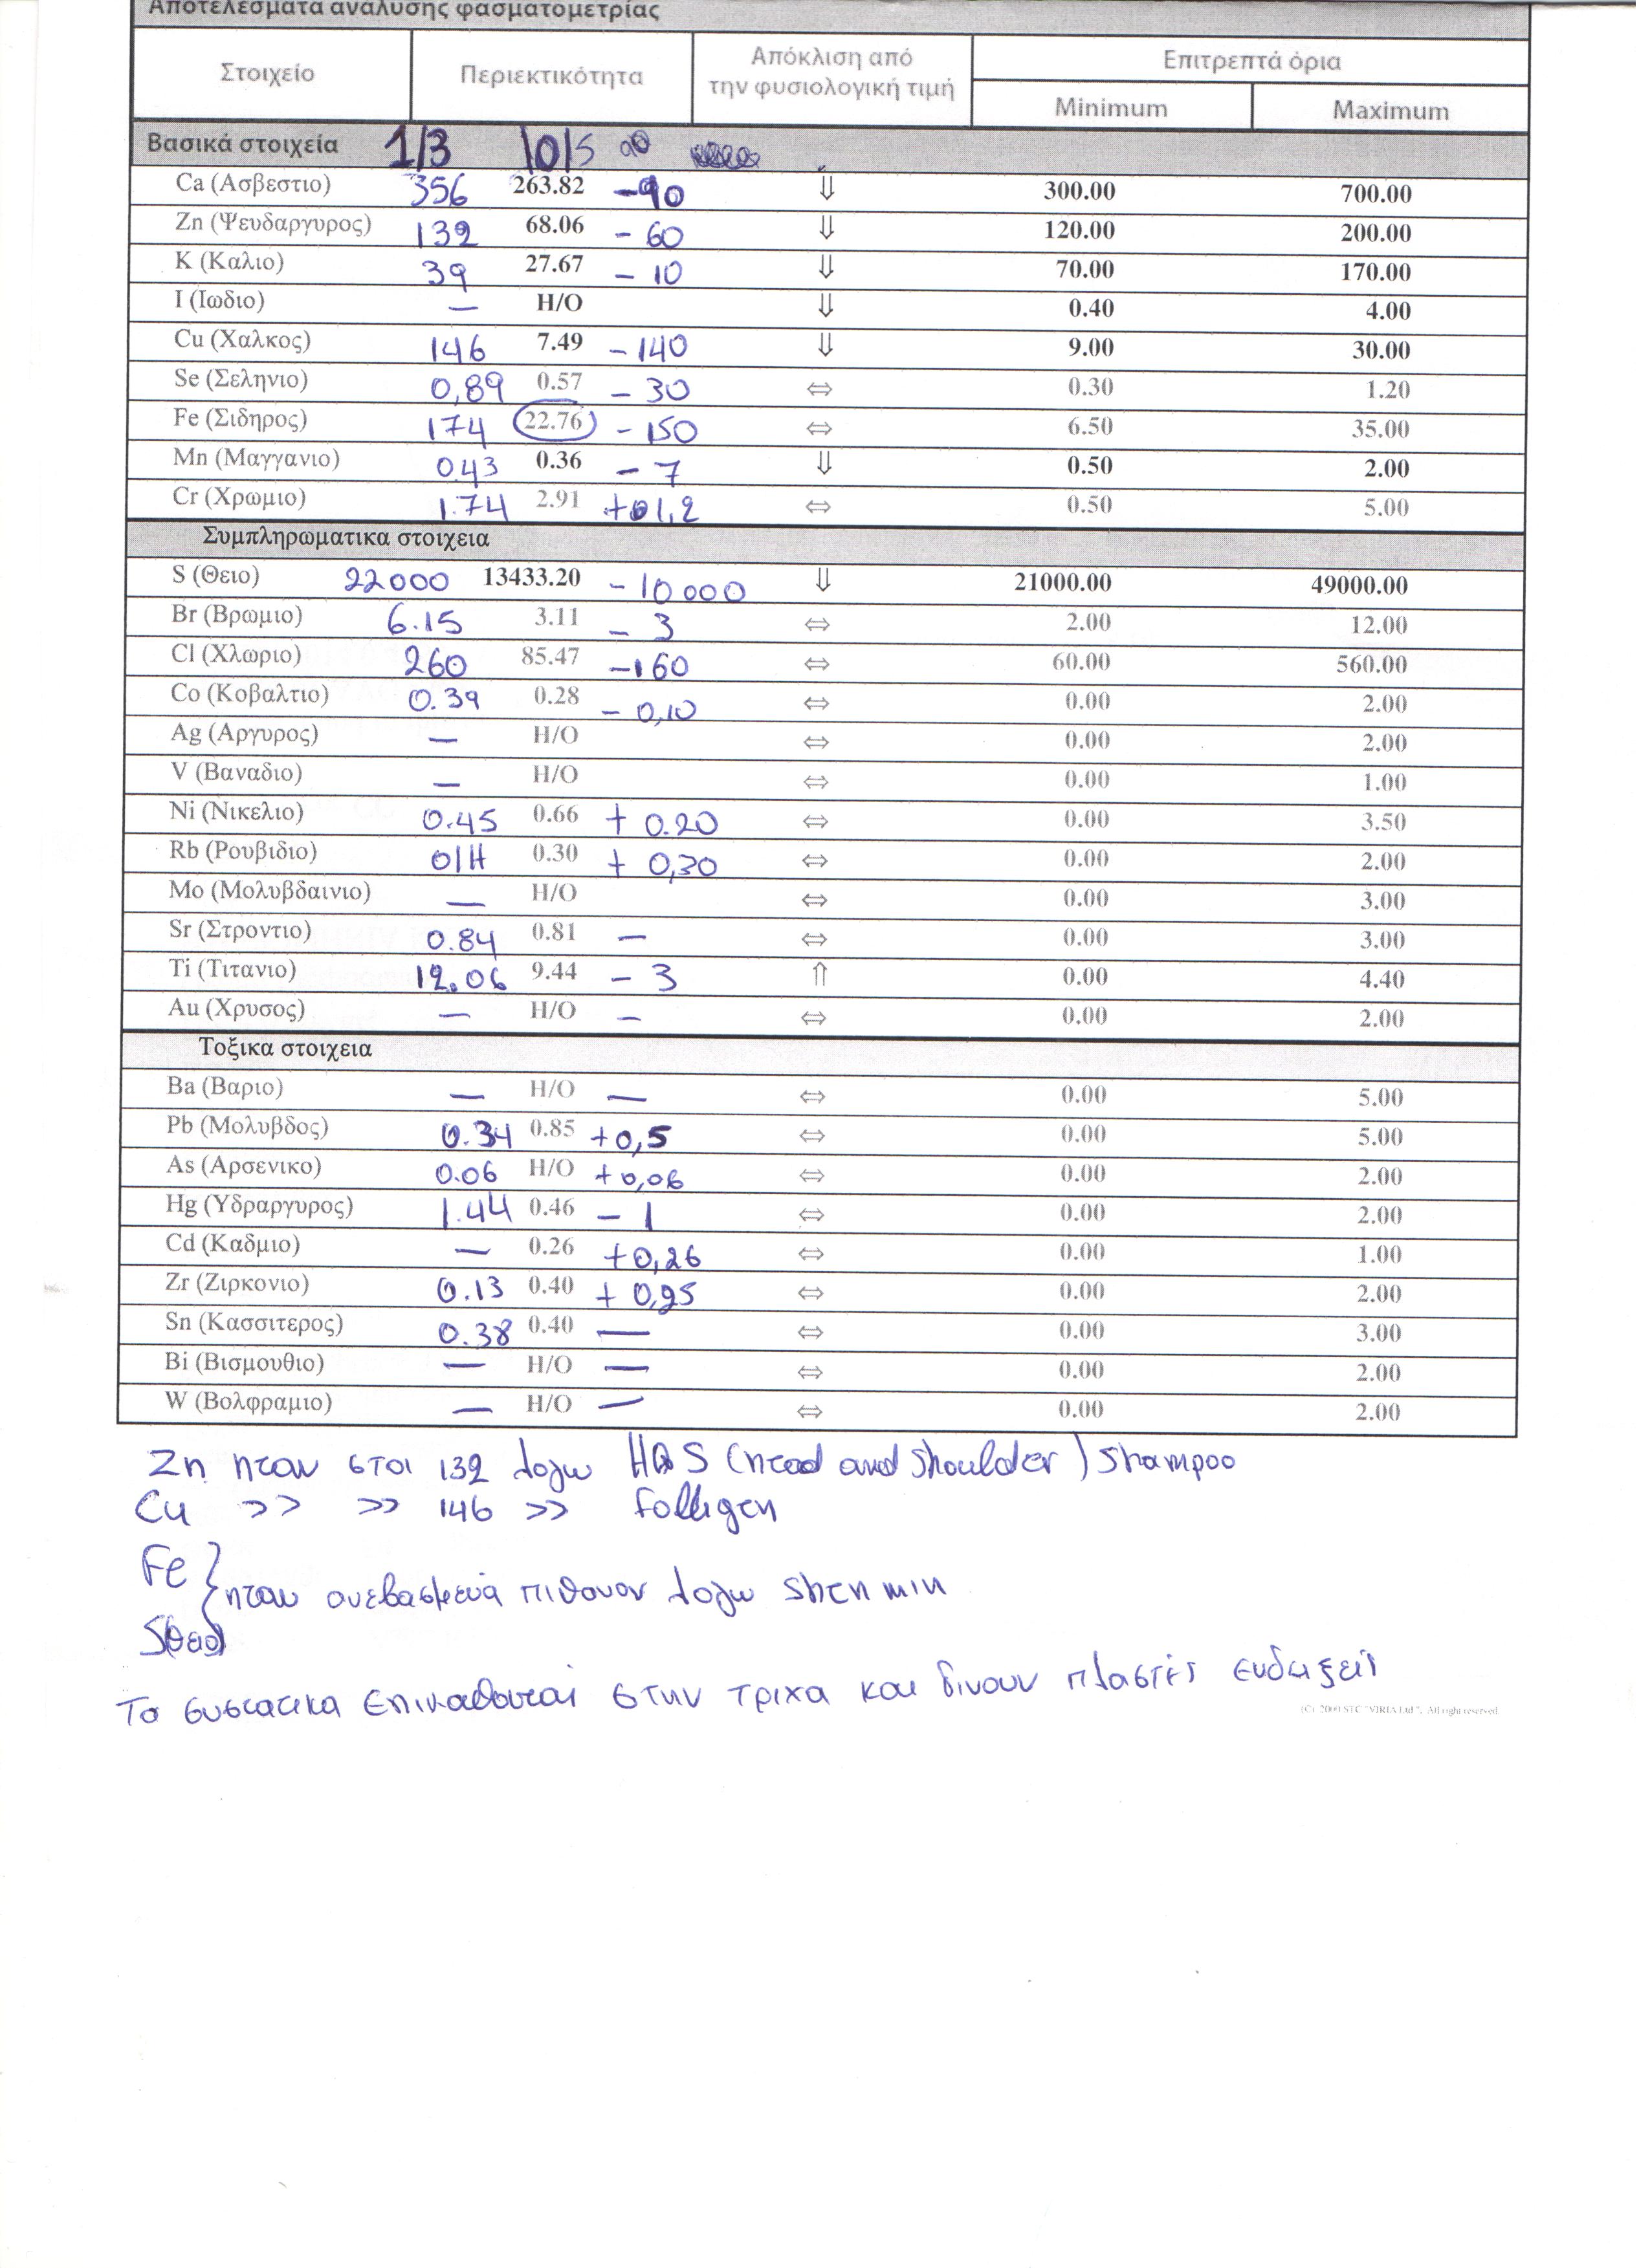 Αποτελέσματα ανάλυσης φασματομετρίας
Στοιχείο Περιεκτικότητα Απόκλιση από την φυσιολογική τιμή Επιτρεπτά όρια
Minimum Maximum
Βασικά στοιχεία 1/3 10/5
Ca (Ασβεστιο) 356 263.82 -90 ⇓ 300.00 700.00
Zn (Ψευδαργυρος) 132 68.06 - 60 ⇓ 120.00 200.00
K (Καλιο) 39 27.67 - 10 ⇓ 70.00 170.00
I (Ιωδιο) — Η/Ο ⇓ 0.40 4.00
Cu (Χαλκος) 146 7.49 - 140 ⇓ 9.00 30.00
Se (Σεληνιο) 0,89 0.57 - 30 ⇔ 0.30 1.20
Fe (Σιδηρος) 174 22.76 - 150 ⇔ 6.50 35.00
Mn (Μαγγανιο) 0.43 0.36 - 7 ⇓ 0.50 2.00
Cr (Χρωμιο) 1.74 2.91 + 1,2 ⇔ 0.50 5.00
Συμπληρωματικα στοιχεια
S (Θειο) 22000 13433.20 - 10000 ⇓ 21000.00 49000.00
Br (Βρωμιο) 6.15 3.11 - 3 ⇔ 2.00 12.00
Cl (Χλωριο) 260 85.47 -160 ⇔ 60.00 560.00
Co (Κοβαλτιο) 0.39 0.28 - 0,10 ⇔ 0.00 2.00
Ag (Αργυρος) — Η/Ο ⇔ 0.00 2.00
V (Βαναδιο) — Η/Ο ⇔ 0.00 1.00
Ni (Νικελιο) 0.45 0.66 + 0.20 ⇔ 0.00 3.50
Rb (Ρουβιδιο) 0.30 + 0,30 ⇔ 0.00 2.00
Mo (Μολυβδαινιο) — Η/Ο ⇔ 0.00 3.00
Sr (Στροντιο) 0.84 0.81 — ⇔ 0.00 3.00
Ti (Τιτανιο) 12.06 9.44 - 3 ⇑ 0.00 4.40
Au (Χρυσος) — Η/Ο — ⇔ 0.00 2.00
Τοξικα στοιχεια
Ba (Βαριο) — Η/Ο — ⇔ 0.00 5.00
Pb (Μολυβδος) 0.34 0.85 +0,5 ⇔ 0.00 5.00
As (Αρσενικο) 0.06 Η/Ο +0,06 ⇔ 0.00 2.00
Hg (Υδραργυρος) 1.44 0.46 - 1 ⇔ 0.00 2.00
Cd (Καδμιο) — 0.26 +0,26 ⇔ 0.00 1.00
Zr (Ζιρκονιο) 0.13 0.40 + 0,25 ⇔ 0.00 2.00
Sn (Κασσιτερος) 0.38 0.40 — ⇔ 0.00 3.00
Bi (Βισμουθιο) — Η/Ο — ⇔ 0.00 2.00
W (Βολφραμιο) — Η/Ο — ⇔ 0.00 2.00
Zn ηταν στοι 132 λογω H&S (head and shoulder) shampoo
Cu >> >> 146 >> Folligen
Fe
ηταν ανεβασμενα πιθανον λογω shen min
S(θειο)
Το συστατικα επικαθονται στην τριχα και δινουν πλαστές ενδειξεις
(C) 2000 STC "VIRIA Ltd.". All right reserved.